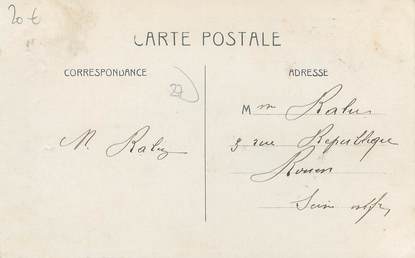 20 €
CARTE POSTALE
CORRESPONDANCE
ADRESSE
27
Mme
3 rue République
Rouen
Seine Infre
M.